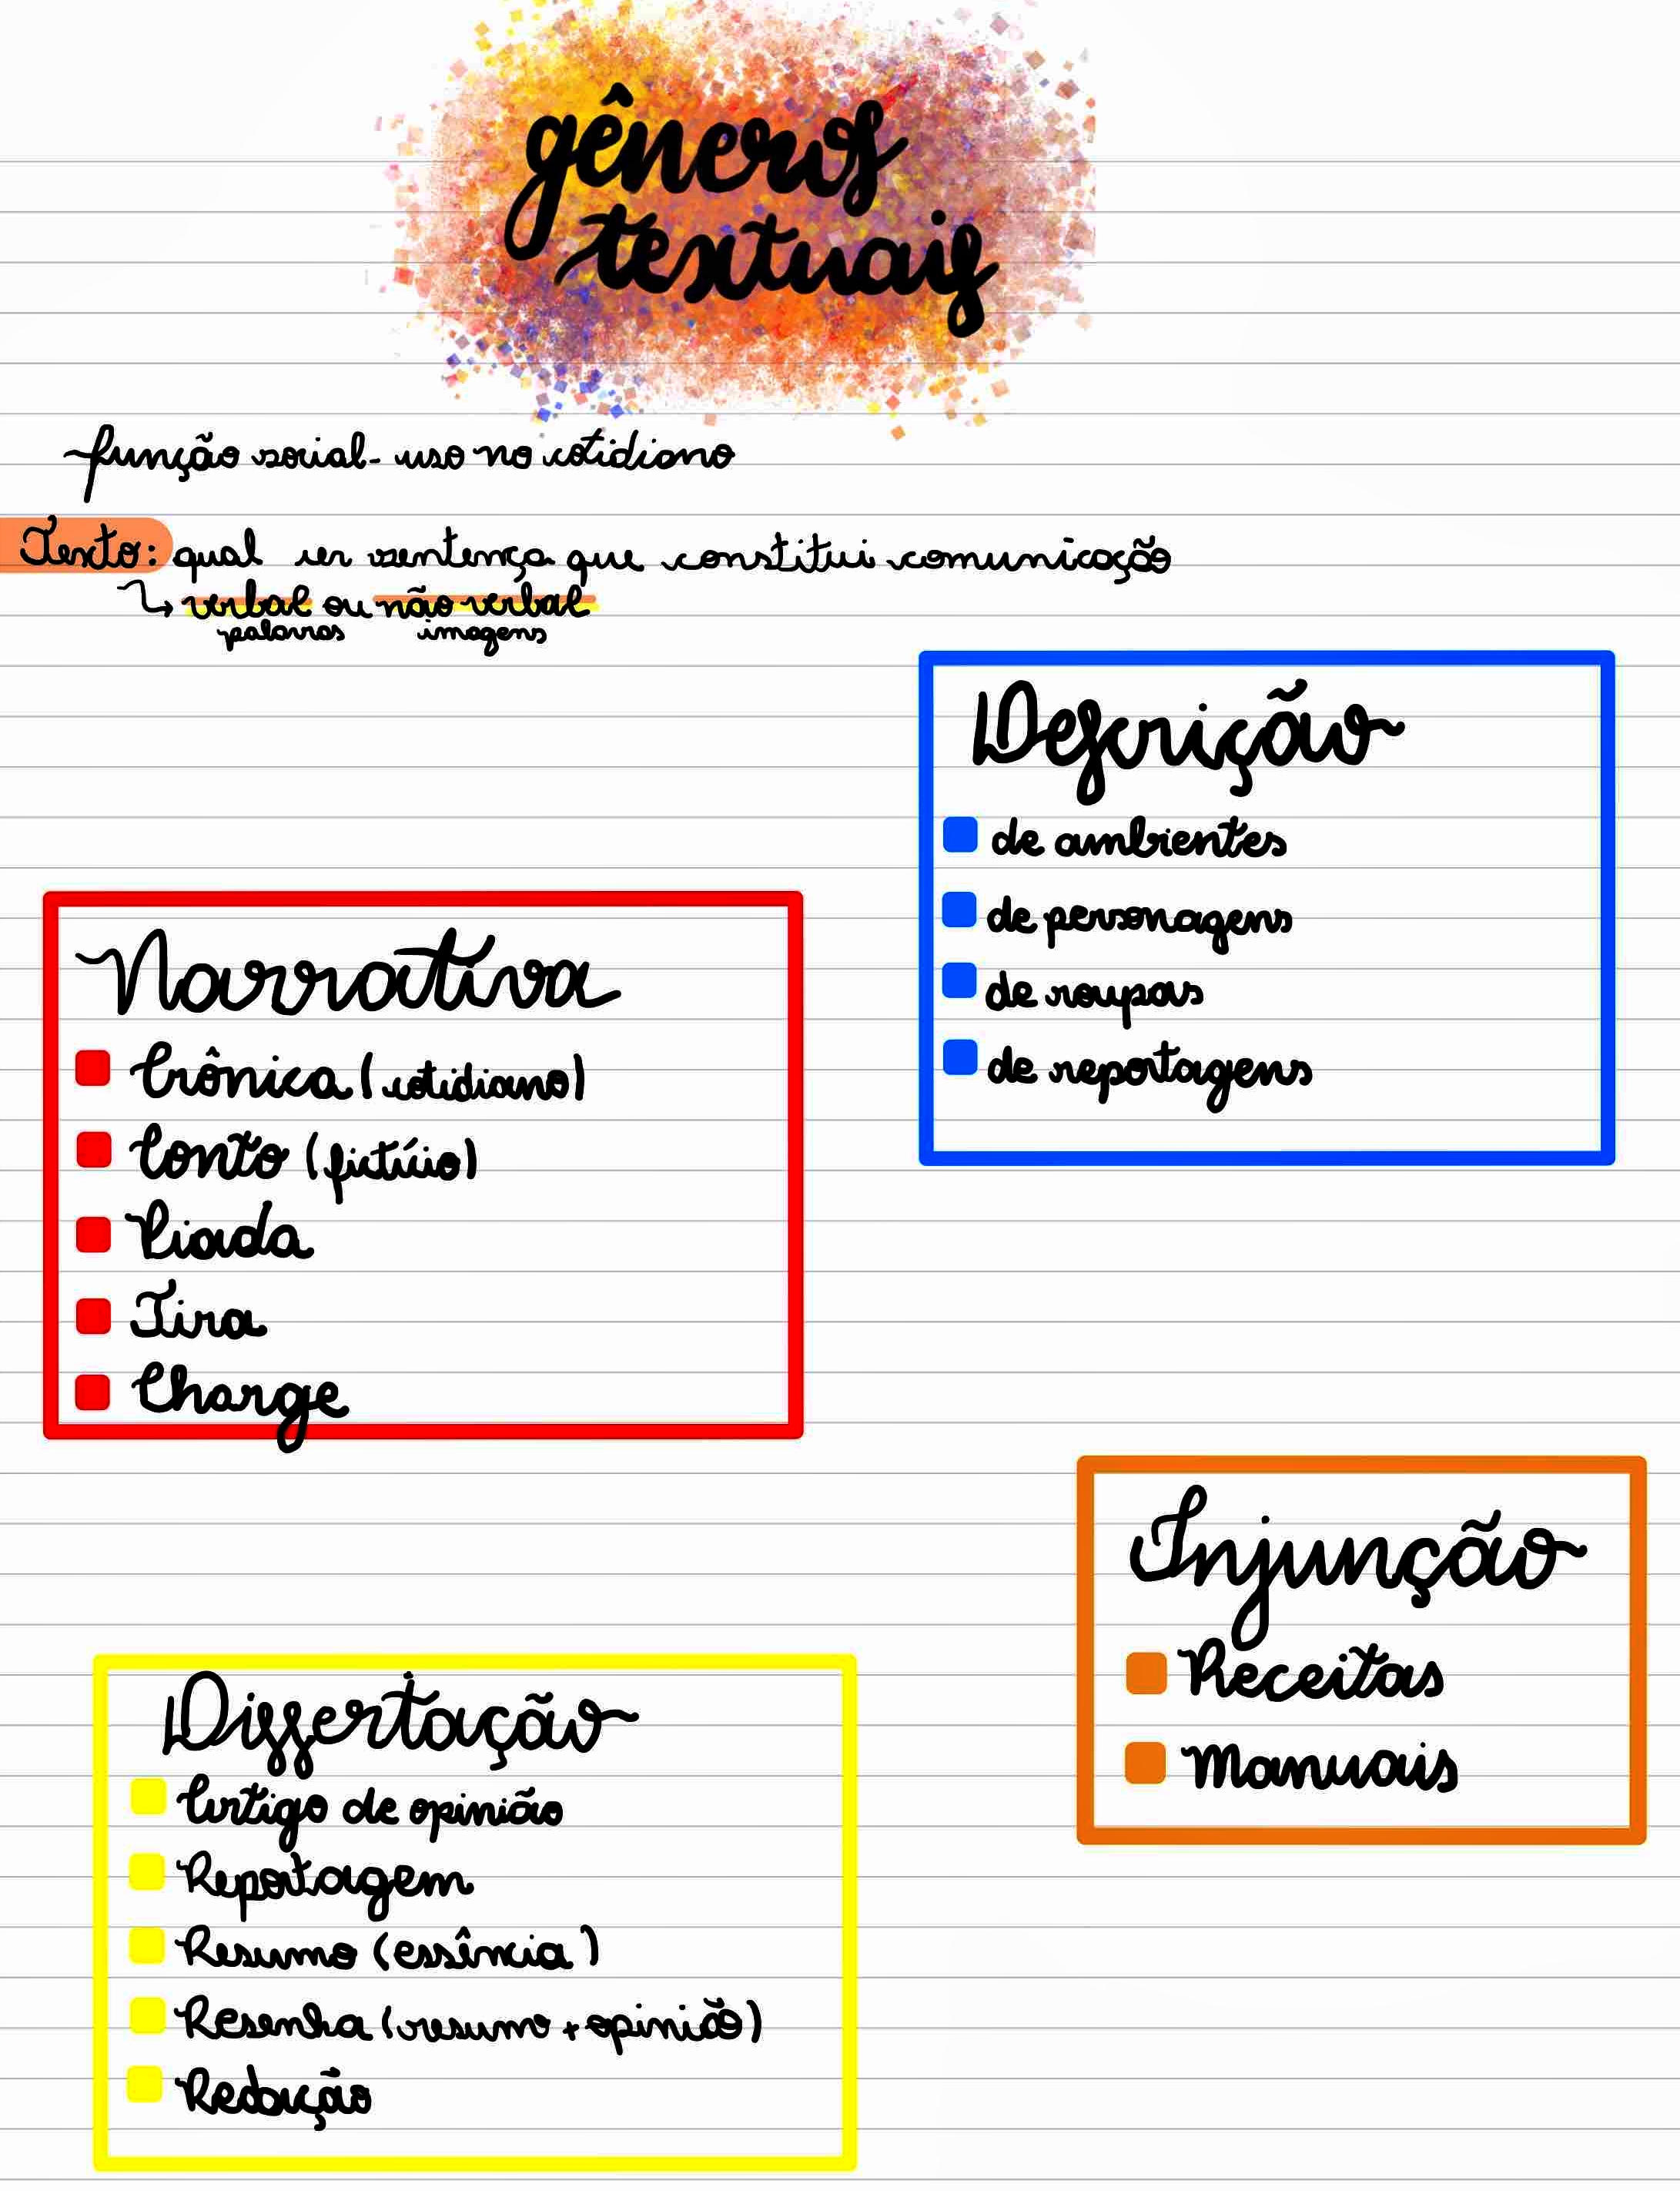 gêneros
textuais
função social - uso no cotidiano
Texto: qual ser sentença que constitui comunicação
↳ verbal ou não verbal
palavras imagens
Descrição
de ambientes
de personagens
de roupas
de reportagens
Narrativa
Crônica (cotidiano)
Conto (fictício)
Piada
Tira
Charge
Injunção
Receitas
Manuais
Dissertação
Artigo de opinião
Reportagem
Resumo (essência)
Resenha (resumo + opinião)
Redação